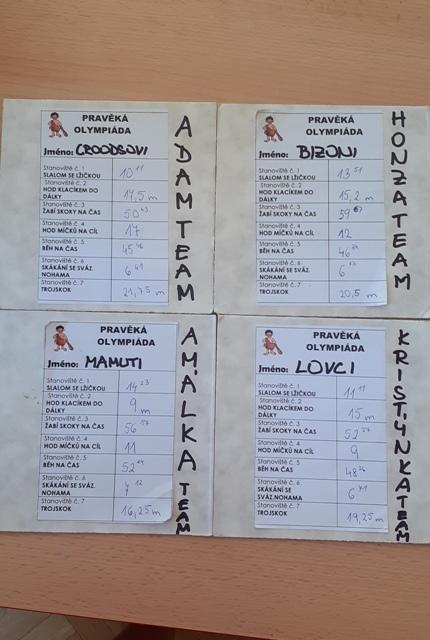 PRAVĚKÁ
OLYMPIÁDA
Jméno: CROODSOVI
Stanoviště č. 1
SLALOM SE LŽIČKOU 10 11
Stanoviště č. 2
HOD KLACÍKEM DO
DÁLKY 17,5 m
Stanoviště č. 3
ŽABÍ SKOKY NA ČAS 50
Stanoviště č. 4
HOD MÍČKŮ NA CÍL 17
Stanoviště č. 5
BĚH NA ČAS 45
Stanoviště č. 6
SKÁKÁNÍ SE SVÁZ.
NOHAMA 6 41
Stanoviště č. 7
TROJSKOK 21,75 m
ADAM TEAM
PRAVĚKÁ
OLYMPIÁDA
Jméno: BIZONI
Stanoviště č. 1
SLALOM SE LŽIČKOU 13 51
Stanoviště č. 2
HOD KLACÍKEM DO
DÁLKY 15,2 m
Stanoviště č. 3
ŽABÍ SKOKY NA ČAS 59
Stanoviště č. 4
HOD MÍČKŮ NA CÍL 12
Stanoviště č. 5
BĚH NA ČAS 46
Stanoviště č. 6
SKÁKÁNÍ SE SVÁZ.
NOHAMA 6
Stanoviště č. 7
TROJSKOK 20,5 m
HONZA TEAM
PRAVĚKÁ
OLYMPIÁDA
Jméno: MAMUTI
Stanoviště č. 1
SLALOM SE LŽIČKOU 14 23
Stanoviště č. 2
HOD KLACÍKEM DO
DÁLKY 9 m
Stanoviště č. 3
ŽABÍ SKOKY NA ČAS 56
Stanoviště č. 4
HOD MÍČKŮ NA CÍL 11
Stanoviště č. 5
BĚH NA ČAS 52
Stanoviště č. 6
SKÁKÁNÍ SE SVÁZ.
NOHAMA 7 12
Stanoviště č. 7
TROJSKOK 16,25 m
AMÁLKA TEAM
PRAVĚKÁ
OLYMPIÁDA
Jméno: LOVCI
Stanoviště č. 1
SLALOM SE LŽIČKOU 11
Stanoviště č. 2
HOD KLACÍKEM DO
DÁLKY 15 m
Stanoviště č. 3
ŽABÍ SKOKY NA ČAS
Stanoviště č. 4
HOD MÍČKŮ NA CÍL 9
Stanoviště č. 5
BĚH NA ČAS 48
Stanoviště č. 6
SKÁKÁNÍ SE
SVÁZ.NOHAMA 6
Stanoviště č. 7
TROJSKOK 19,25 m
KRISTÝNKA TEAM